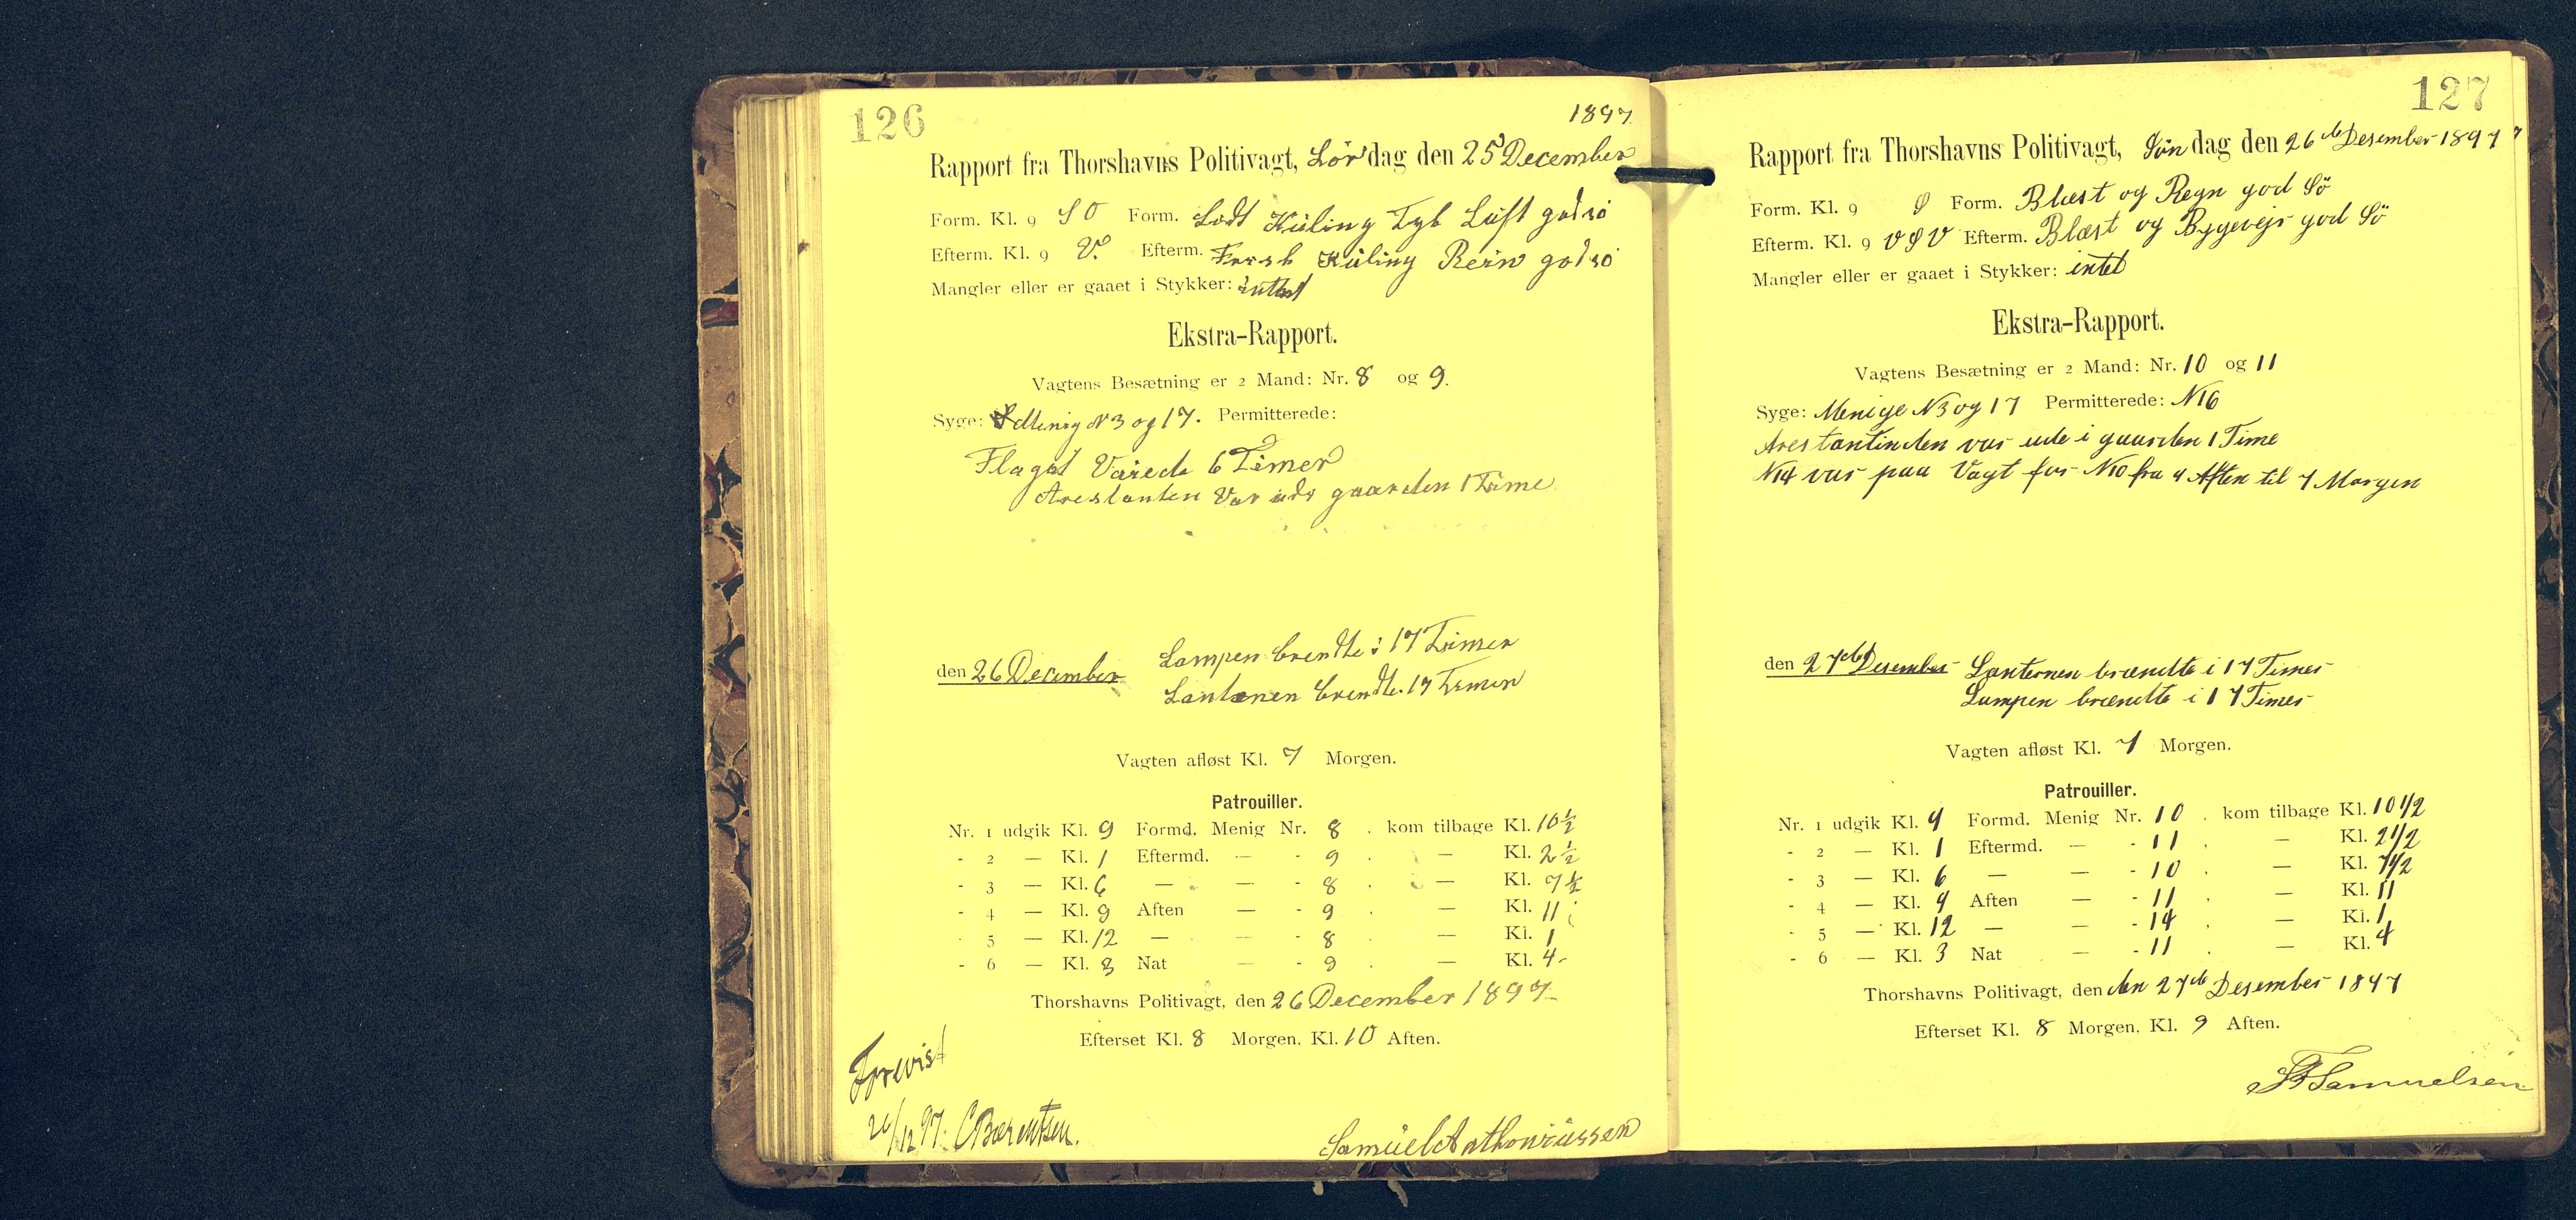 126
1897
Rapport fra Thorshavns Politivagt, Lördag den 25 December
Form. Kl. 9 S O Form. Lødt Kuling Tyk Luft god sö
Efterm. Kl. 9 V. Efterm. Frisk Kuling Rein god sö
Mangler eller er gaaet i Stykker: intet
Ekstra-Rapport.
Vagtens Besætning er 2 Mand: Nr. 8 og 9.
Syge: Menig N 3 og 17. Permitterede:
Flaget Vaiede 6 Timer
Arestanten Var ude gaarden 1 Time
den 26 December Lampen brendte i 17 Timer
Lanternen brendte 17 Timer
Vagten afløst Kl. 7 Morgen.
Patrouiller.
Nr. 1 udgik Kl. 9 Formd. Menig Nr. 8 . kom tilbage Kl. 10 1/2
- 2 — Kl. 1 Eftermd. — - 9 . — Kl. 2 1/2
- 3 — Kl. 6 — — - 8 . — Kl. 7 1/2
- 4 — Kl. 9 Aften — - 9 . — Kl. 11
- 5 — Kl. 12 — — - 8 . — Kl. 1
- 6 — Kl. 3 Nat — - 9 . — Kl. 4-
Thorshavns Politivagt, den 26 December 1897
Efterset Kl. 8 Morgen, Kl. 10 Aften.
Forevist
26/12 97. CBærentsen.
Samuel Anthoniussen
127
Rapport fra Thorshavns Politivagt, Söndag den 26de Desember 1897
Form. Kl. 9 Ø Form. Blæst og Regn god Sö
Efterm. Kl. 9 V Ø V Efterm. Blæst og Bygevejr god Sö
Mangler eller er gaaet i Stykker: intet
Ekstra-Rapport.
Vagtens Besætning er 2 Mand: Nr. 10 og 11
Syge: Menige N3 og 17 Permitterede: N16
Arestantinden var ude i gaarden 1 Time
N14 var paa Vagt for N10 fra 9 Aften til 7 Morgen
den 27de Desember Lanternen brændte i 17 Timer
Lampen brændte i 17 Timer
Vagten afløst Kl. 7 Morgen.
Patrouiller.
Nr. 1 udgik Kl. 9 Formd. Menig Nr. 10 . kom tilbage Kl. 10 1/2
- 2 — Kl. 1 Eftermd. — - 11 . — Kl. 2 1/2
- 3 — Kl. 6 — — - 10 . — Kl. 7 1/2
- 4 — Kl. 9 Aften — - 11 . — Kl. 11
- 5 — Kl. 12 — — - 14 . — Kl. 1
- 6 — Kl. 3 Nat — - 11 . — Kl. 4
Thorshavns Politivagt, den den 27de Desember 1897
Efterset Kl. 8 Morgen, Kl. 9 Aften.
Samuelsen